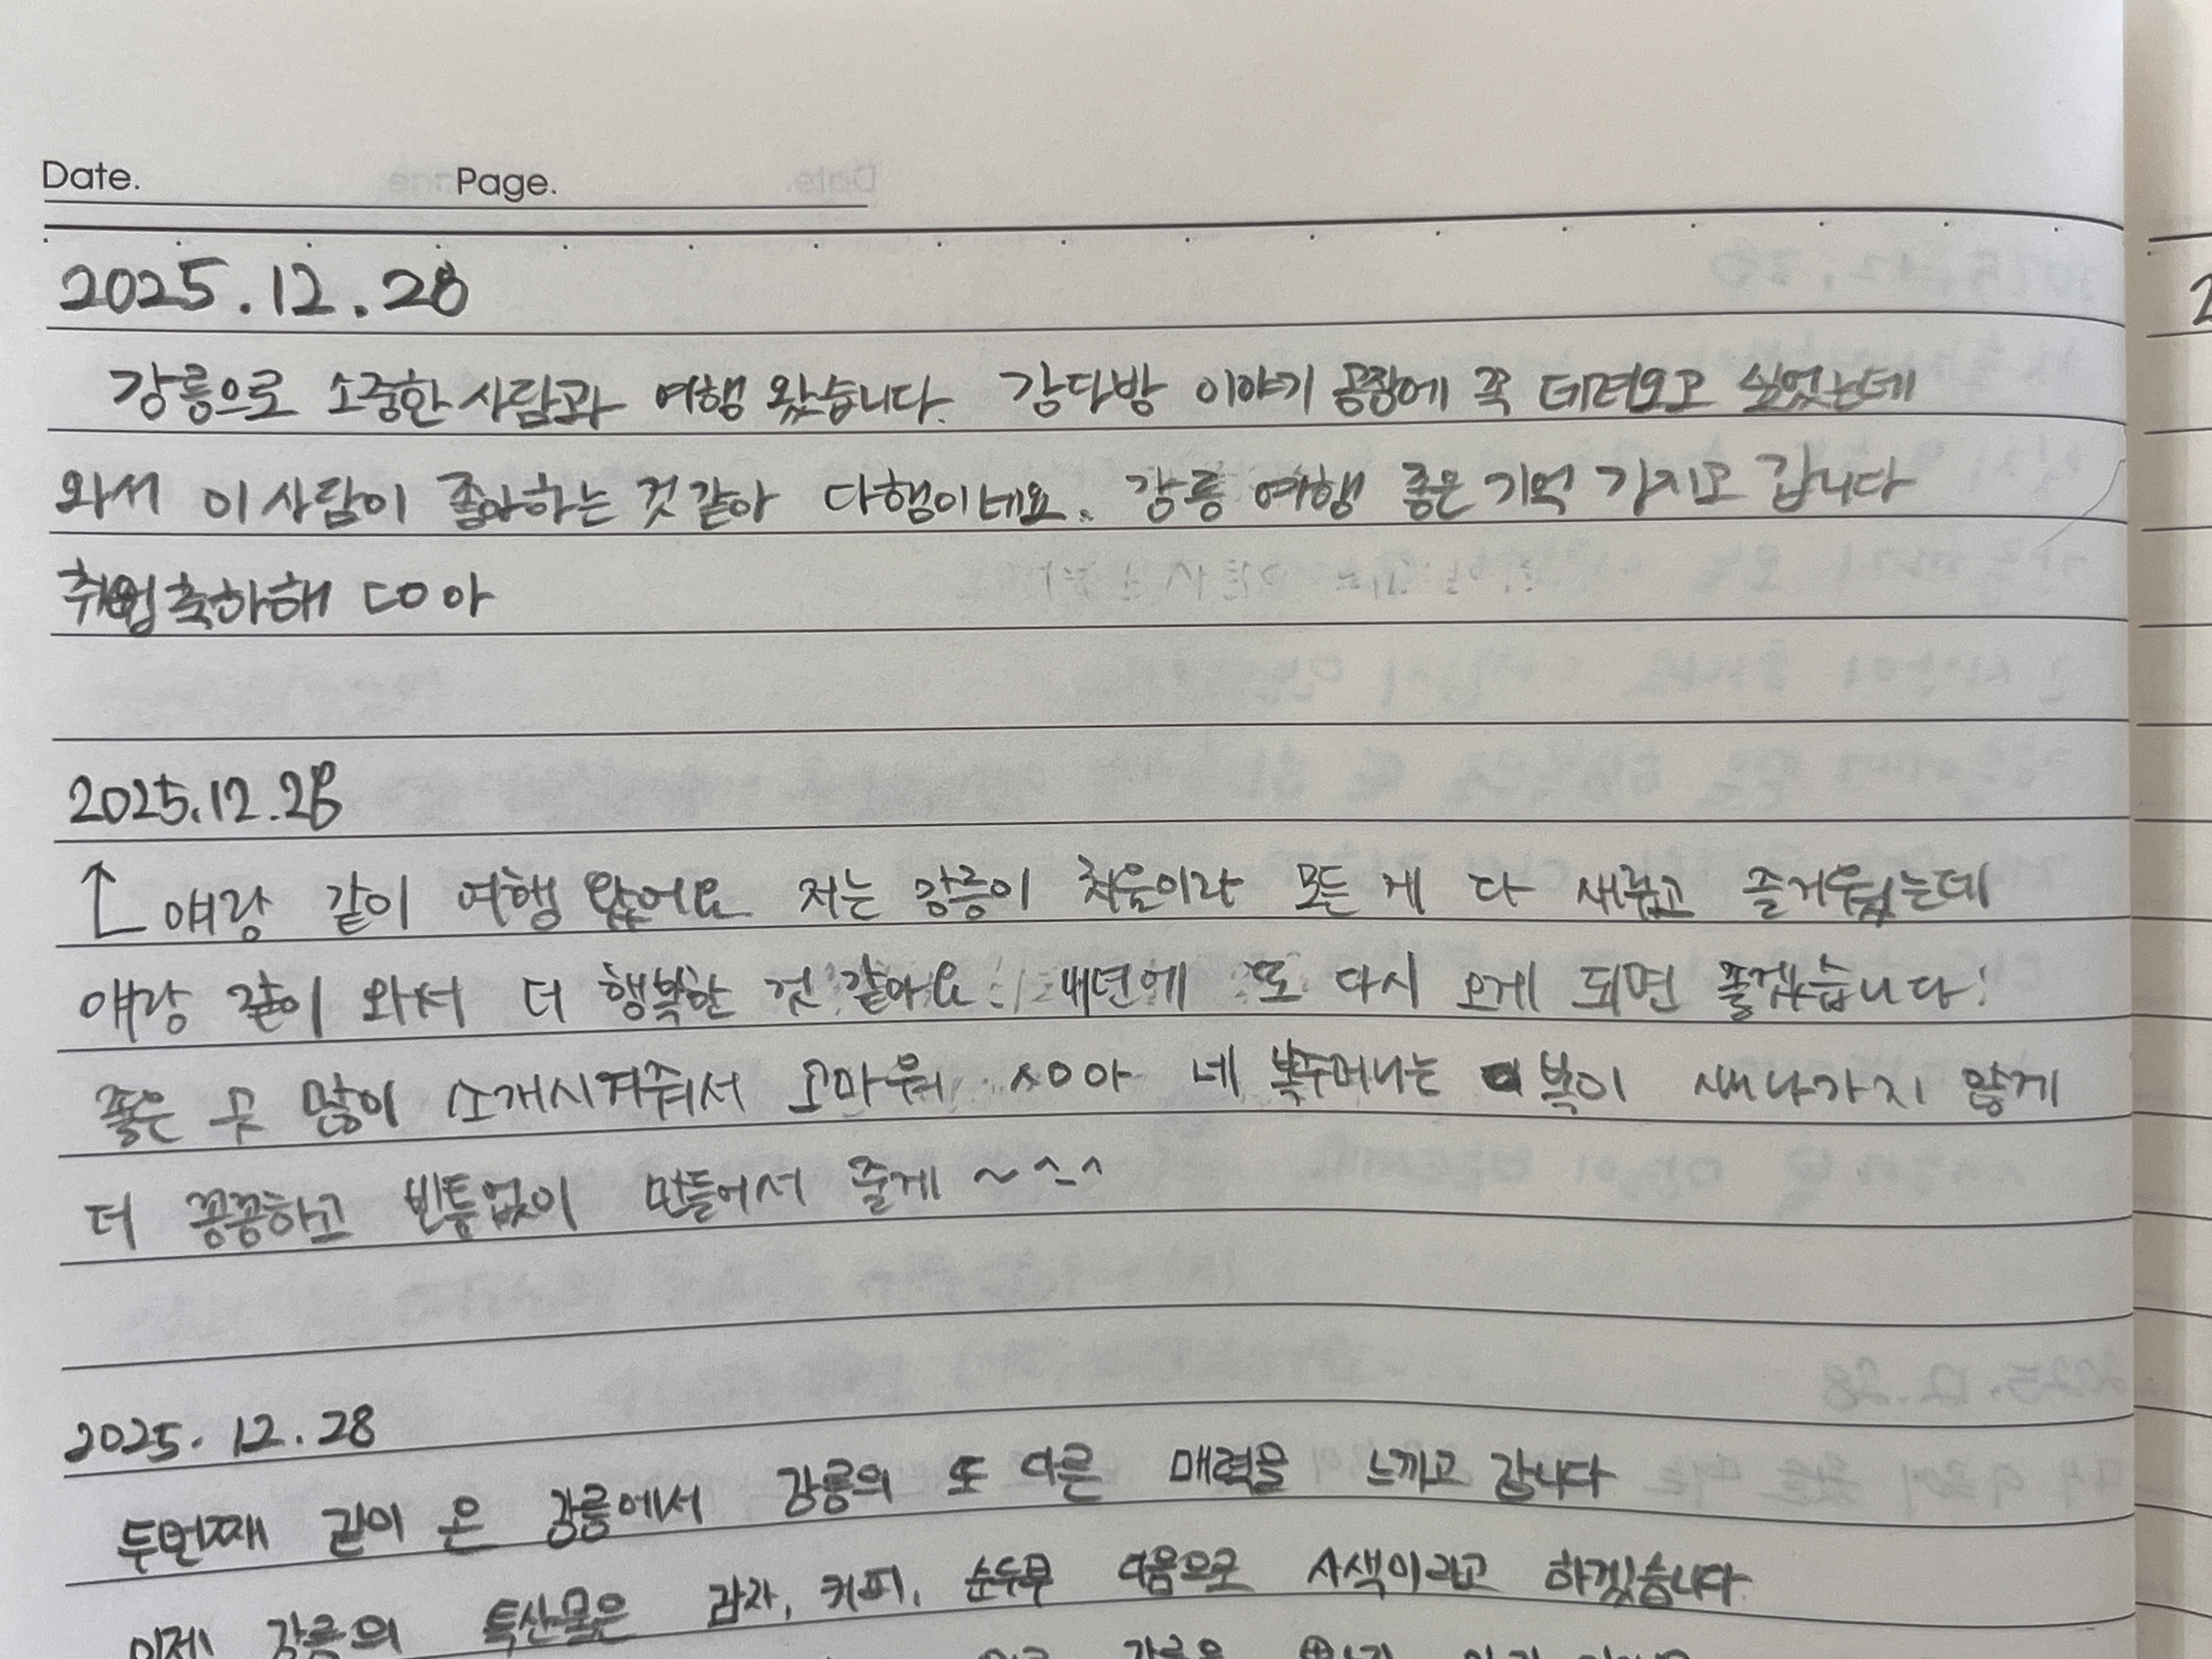 Date. Page.
2025.12.28
강릉으로 소중한 사람과 여행 왔습니다. 강다방 이야기 공장에 꼭 데려오고 싶었는데
와서 이 사람이 좋아하는 것 같아 다행이네요. 강릉 여행 좋은 기억 가지고 갑니다
취업축하해 ㄷㅇ아
2025.12.28
↑ 얘랑 같이 여행 왔어요 저는 강릉이 처음이라 모든 게 다 새롭고 즐거웠는데
얘랑 같이 와서 더 행복한 것 같아요! 내년에 또 다시 오게 되면 좋겠습니다!
좋은 곳 많이 소개시켜줘서 고마워 ㅅㅇ아 네 복주머니는 복이 새나가지 않게
더 꽁꽁하고 빈틈없이 만들어서 줄게 ~^-^
2025. 12. 28
두번째 같이 온 강릉에서 강릉의 또 다른 매력을 느끼고 갑니다
이제 강릉의 특산물은 감자, 커피, 순두부 다음으로 사색이라고 하겠습니다
강릉을